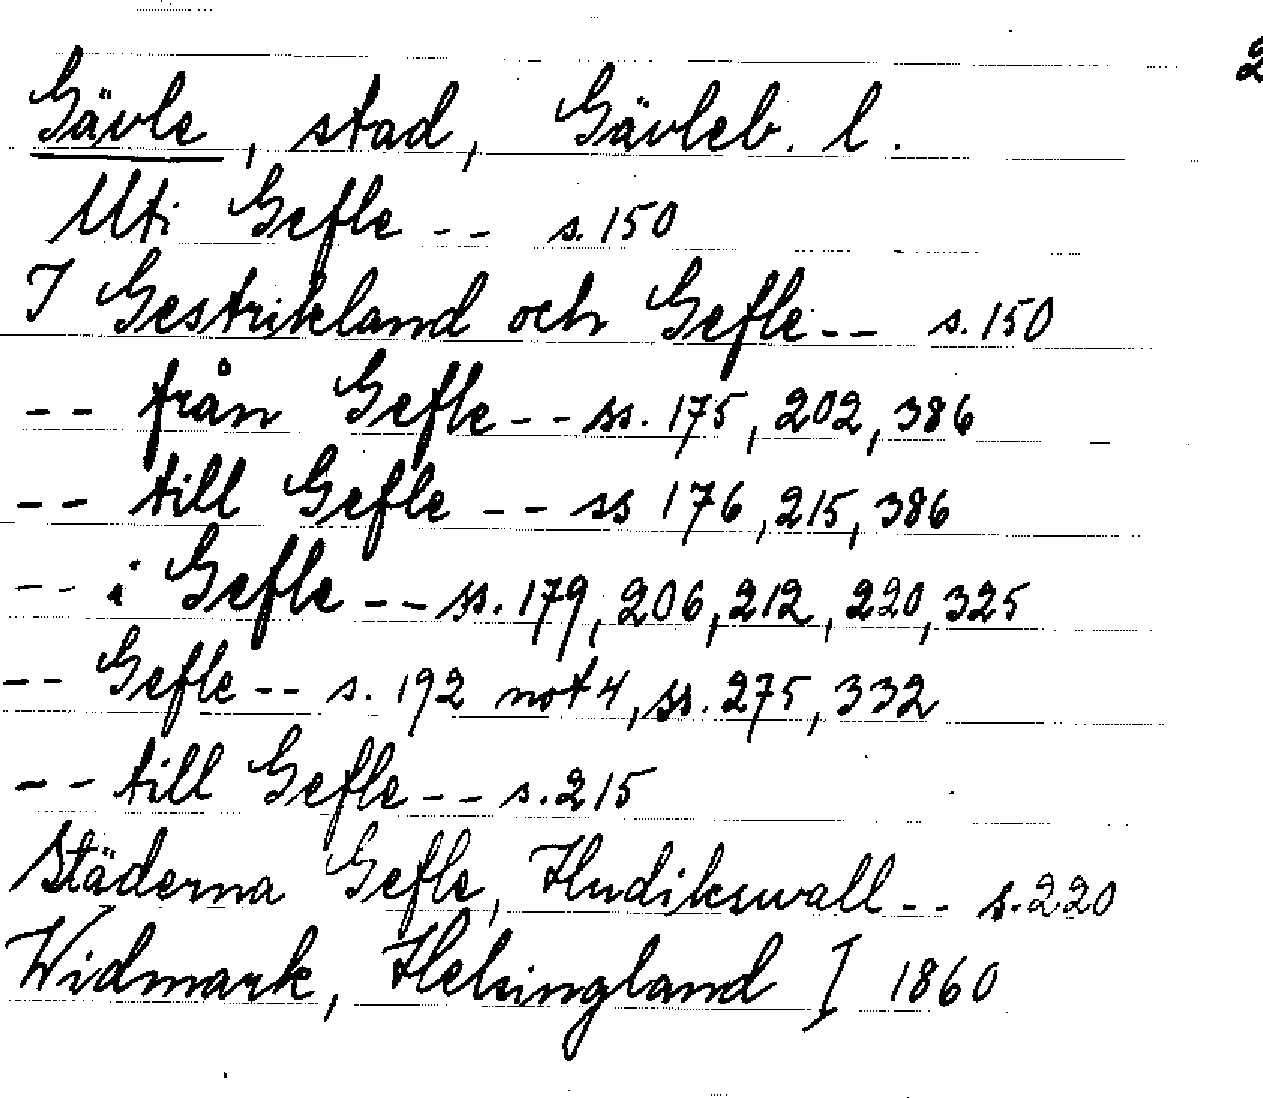 2
Gävle, stad, Gävleb. l.
Uti Gefle -- s. 150
I Gestrikland och Gefle -- s. 150
-- från Gefle -- ss. 175, 202, 386
-- till Gefle -- ss 176, 215, 386
-- i Gefle -- ss. 179, 206, 212, 220, 325
-- Gefle -- s. 192 not 4, ss. 275, 332
-- till Gefle -- s. 215
Städerna Gefle, Hudikswall -- s. 220
Widmark, Helsingland I 1860